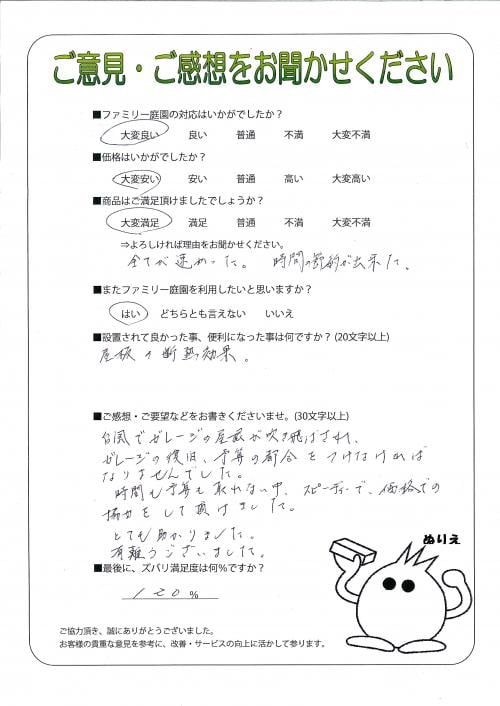 ご意見・ご感想をお聞かせください
■ファミリー庭園の対応はいかがでしたか？
大変良い 良い 普通 不満 大変不満
■価格はいかがでしたか？
大変安い 安い 普通 高い 大変高い
■商品はご満足頂けましたでしょうか？
大変満足 満足 普通 不満 大変不満
⇒よろしければ理由をお聞かせください。
全てが速かった。 時間の節約が出来た。
■またファミリー庭園を利用したいと思いますか？
はい どちらとも言えない いいえ
■設置されて良かった事、便利になった事は何ですか？（20文字以上）
屋根の断熱効果。
■ご感想・ご要望などをお書きくださいませ。（30文字以上）
台風でガレージの屋根が吹き飛ばされ、
ガレージの復旧、予算の都合をつけなければ
なりませんでした。
時間も予算も取れない中、スピーディで、価格での
協力をして頂けました。
とても助かりました。
有難うございました。
■最後に、ズバリ満足度は何％ですか？
120％
ぬりえ
ご協力頂き、誠にありがとうございました。
お客様の貴重な意見を参考に、改善・サービスの向上に活かして参ります。